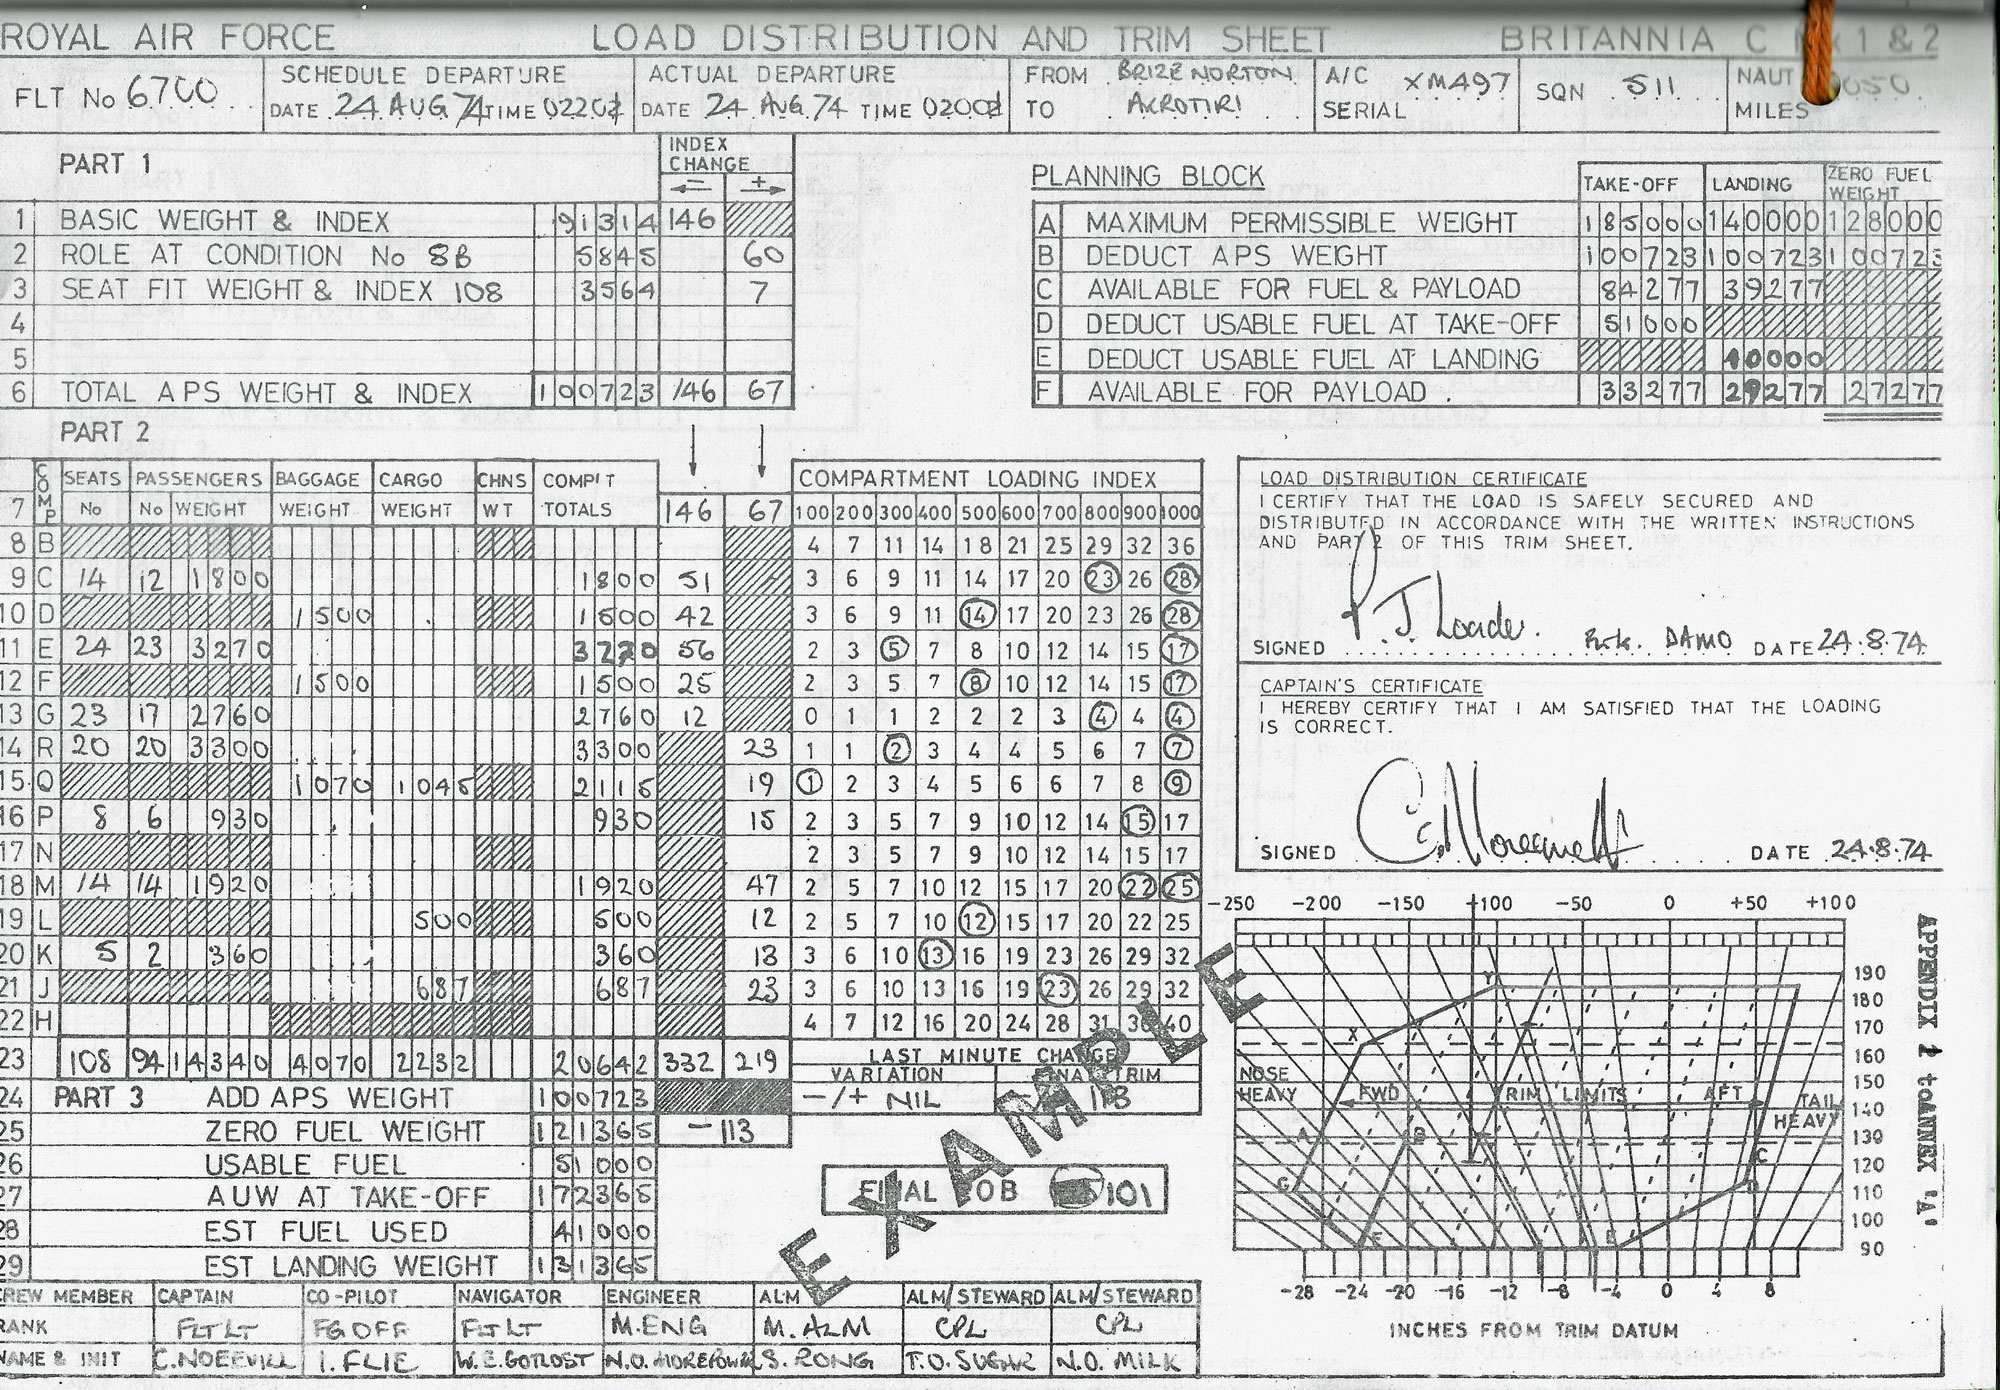 ROYAL AIR FORCE LOAD DISTRIBUTION AND TRIM SHEET BRITANNIA C 1 & 2
FLT No 6700 SCHEDULE DEPARTURE ACTUAL DEPARTURE FROM BRIZE NORTON A/C XM497 SQN 511 NAUT
DATE 24 AUG 74 TIME 0220Z DATE 24 AUG 74 TIME 0200Z TO AKROTIRI SERIAL MILES
PART 1 INDEX CHANGE
← − + →
1 BASIC WEIGHT & INDEX 91314 146
2 ROLE AT CONDITION No 8B 5845 60
3 SEAT FIT WEIGHT & INDEX 108 3564 7
4
5
6 TOTAL APS WEIGHT & INDEX 100723 146 67
PLANNING BLOCK TAKE-OFF LANDING ZERO FUEL WEIGHT
A MAXIMUM PERMISSIBLE WEIGHT 185000 140000 128000
B DEDUCT APS WEIGHT 100723 100723 100723
C AVAILABLE FOR FUEL & PAYLOAD 84277 39277
D DEDUCT USABLE FUEL AT TAKE-OFF 51000
E DEDUCT USABLE FUEL AT LANDING 10000
F AVAILABLE FOR PAYLOAD. 33277 29277 27277
PART 2
7 COMP SEATS No PASSENGERS No WEIGHT BAGGAGE WEIGHT CARGO WEIGHT CHNS WT COMP'T TOTALS 146 67
COMPARTMENT LOADING INDEX
100 200 300 400 500 600 700 800 900 1000
8 B 4 7 11 14 18 21 25 29 32 36
9 C 14 12 1800 1800 51 3 6 9 11 14 17 20 23 26 28
10 D 1500 1500 42 3 6 9 11 14 17 20 23 26 28
11 E 24 23 3270 3270 56 2 3 5 7 8 10 12 14 15 17
12 F 1500 1500 25 2 3 5 7 8 10 12 14 15 17
13 G 23 17 2760 2760 12 0 1 1 2 2 2 3 4 4 4
14 R 20 20 3300 3300 23 1 1 2 3 4 4 5 6 7 7
15 Q 1070 1045 2115 19 1 2 3 4 5 6 6 7 8 9
16 P 8 6 930 930 15 2 3 5 7 9 10 12 14 15 17
17 N 2 3 5 7 9 10 12 14 15 17
18 M 14 14 1920 1920 47 2 5 7 10 12 15 17 20 22 25
19 L 500 500 12 2 5 7 10 12 15 17 20 22 25
20 K 5 2 360 360 13 3 6 10 13 16 19 23 26 29 32
21 J 687 687 23 3 6 10 13 16 19 23 26 29 32
22 H 4 7 12 16 20 24 28 31 36 40
23 108 94 14340 4070 2232 20642 332 219
LAST MINUTE CHANGE
VARIATION FINAL TRIM
-/+ NIL 113
24 PART 3 ADD APS WEIGHT 100723
25 ZERO FUEL WEIGHT 121365 -113
26 USABLE FUEL 51000
27 AUW AT TAKE-OFF 172365
28 EST FUEL USED 41000
29 EST LANDING WEIGHT 131365
FINAL POB 101
EXAMPLE
LOAD DISTRIBUTION CERTIFICATE
I CERTIFY THAT THE LOAD IS SAFELY SECURED AND
DISTRIBUTED IN ACCORDANCE WITH THE WRITTEN INSTRUCTIONS
AND PART 2 OF THIS TRIM SHEET.
SIGNED P. J. Loader. DAMO DATE 24.8.74
CAPTAIN'S CERTIFICATE
I HEREBY CERTIFY THAT I AM SATISFIED THAT THE LOADING
IS CORRECT.
SIGNED DATE 24.8.74
-250 -200 -150 -100 -50 0 +50 +100
190
180
170
160
150
140
130
120
110
100
90
NOSE HEAVY FWD TRIM LIMITS AFT TAIL HEAVY
X Y A B C D E F G
-28 -24 -20 -16 -12 -8 -4 0 4 8
INCHES FROM TRIM DATUM
APPENDIX 1 to ANNEX 'A'
CREW MEMBER CAPTAIN CO-PILOT NAVIGATOR ENGINEER ALM ALM/STEWARD ALM/STEWARD
RANK FLT LT FG OFF FLT LT M.ENG M.ALM CPL CPL
NAME & INIT C.NOEEVILL I.FLIE W.E.GOTLOST N.O.MOREPOWER S.RONG T.O.SUGAR N.O.MILK